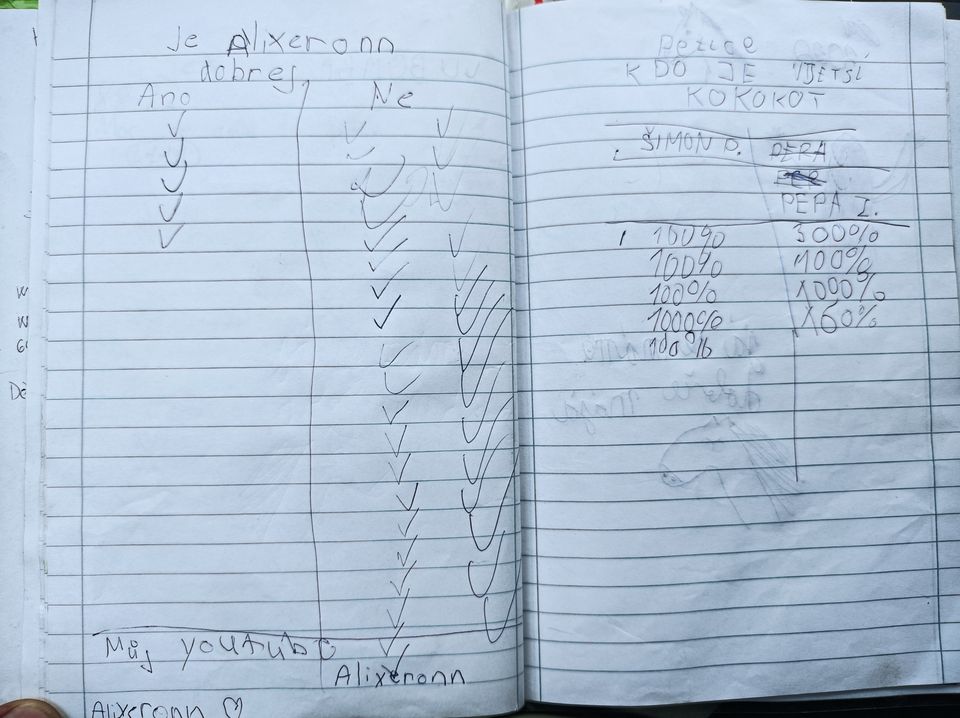 Je Alixeronn
dobrej
Ano Ne
Můj youtube
Alixeronn
Alixeronn
Petice
KDO JE
KOKOKOT
ŠIMON D. PEPA
PEPA I.
100% 300%
100% 100%
100% 1000%
1000% 160%
100%